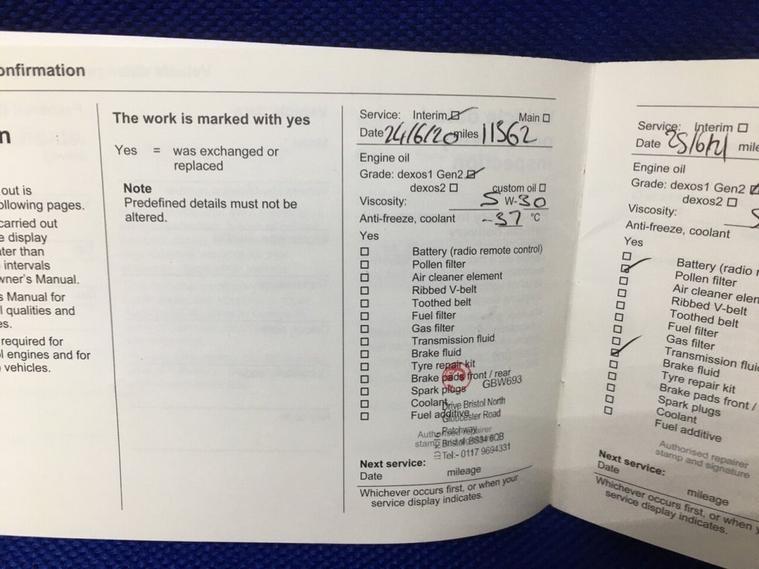 onfirmation
n
out is
ollowing pages.
carried out
e display
ater than
intervals
wner's Manual.
s Manual for
l qualities and
es.
required for
l engines and for
vehicles.
The work is marked with yes
Yes = was exchanged or
replaced
Note
Predefined details must not be
altered.
Service: Interim ☑ Main ☐
Date 24/6/20 miles 11362
Engine oil
Grade: dexos1 Gen2 ☑
dexos2 ☐ custom oil ☐
Viscosity: 5 W-30
Anti-freeze, coolant -37 °C
Yes
☐ Battery (radio remote control)
☐ Pollen filter
☐ Air cleaner element
☐ Ribbed V-belt
☐ Toothed belt
☐ Fuel filter
☐ Gas filter
☐ Transmission fluid
☐ Brake fluid
☐ Tyre repair kit
☐ Brake pads front / rear
☐ Spark plugs GBW693
☐ Coolant
☐ Fuel additive
Drive Bristol North
Gloucester Road
Patchway
Bristol BS34 6QB
Tel:- 0117 9694331
Next service:
Date mileage
Whichever occurs first, or when your
service display indicates.
Service: Interim ☐
Date 25/6/21 mile
Engine oil
Grade: dexos1 Gen2 ☑
dexos2 ☐
Viscosity: 5
Anti-freeze, coolant
Yes
☐ Battery (radio r
☑ Pollen filter
☐ Air cleaner elem
☐ Ribbed V-belt
☐ Toothed belt
☐ Fuel filter
☐ Gas filter
☐ Transmission fluid
☑ Brake fluid
☐ Tyre repair kit
☐ Brake pads front /
☐ Spark plugs
☐ Coolant
☐ Fuel additive
Authorised repairer
stamp and signature
Next service:
Date mileage
Whichever occurs first, or when y
service display indicates.